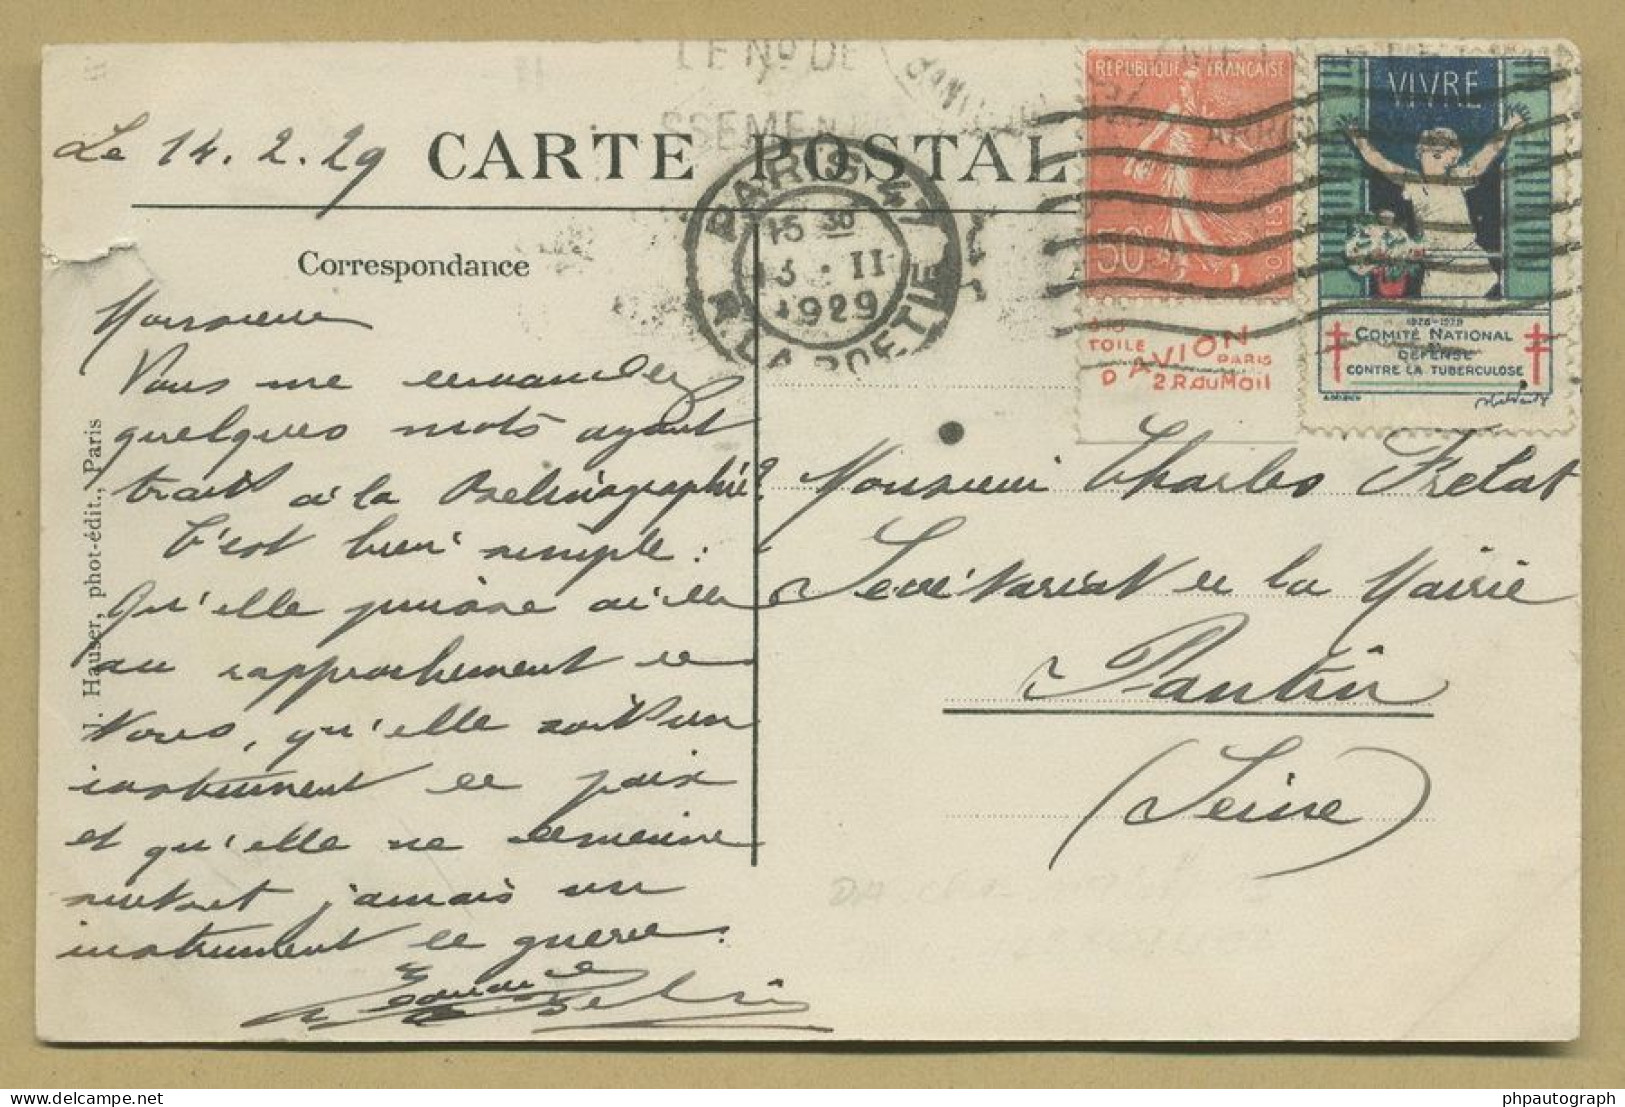 LE No DE
SSEMEN
Le 14.2.29
CARTE POSTALE
PARIS 47
15 30
13 · II
1929
R. LA BOETIE
REPUBLIQUE FRANÇAISE
50c
POSTES
TOILE
AVION
PARIS
D'AVION
2 R.DU MAIL
VIVRE
1928-1929
COMITÉ NATIONAL
DE
DÉFENSE
CONTRE LA TUBERCULOSE
Correspondance
Monsieur
Vous me demandez
quelques mots ayant
trait à la Belinographie ?
C'est bien simple :
Qu'elle puisse aider
au rapprochement de
Nous, qu'elle soit un
instrument de paix
et qu'elle ne devienne
surtout jamais un
instrument de guerre.
Edouard Belin
Monsieur Charles Frelat
Secrétariat de la Mairie
Pantin
(Seine)
J. Hauser, phot-édit., Paris
delcampe.net
phpautograph